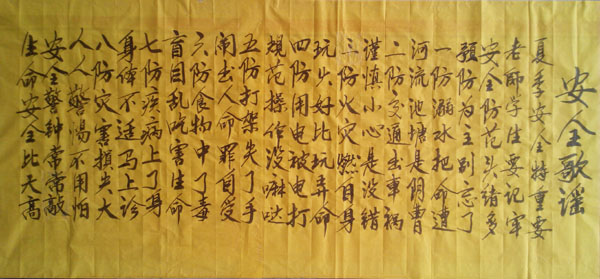 安全歌谣
夏季安全特重要
老師学生要记牢
安全防范头绪多
预防为主别忘了
一防溺水把命遭
河流池塘是阴曹
二防交通出車祸
谨慎小心是没错
三防火灾燃自身
玩火好比玩弄命
四防用电被电打
规范操作没嘛哒
五防打架失了手
闹出人命罪自受
六防食物中了毒
盲目乱吃害生命
七防疾病上了身
身体不适马上诊
八防灾害损失大
人人警惕不用怕
安全警钟常常敲
生命安全比天高